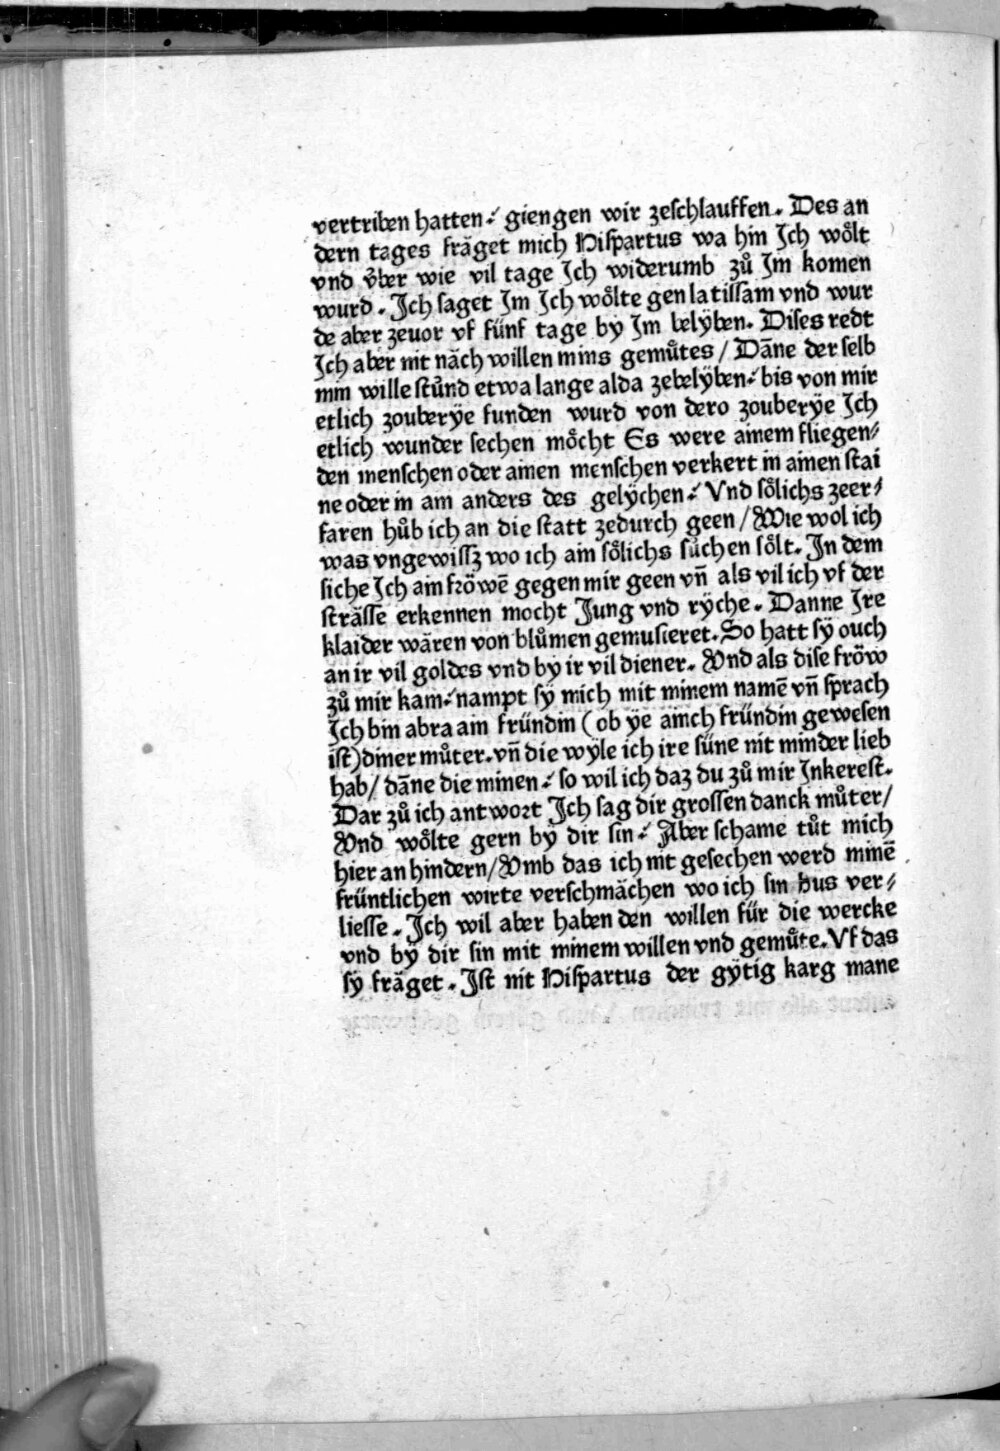 vertriben hatten·́ giengen wir zeſchlauffen. Des an
dern tages frǎget mich Hiſpartus wa hin Jch woͤlt
vnd v̊ber wie vil tage Jch widerumb zů Jm komen
wurd. Jch ſaget Jm Jch woͤlte gen latiſſam vnd wur
de aber zeuor vf fünf tage by Jm belÿben. Diſes redt
Jch aber nit nǎch willen mins gemuͤtes / Dāne der ſelb
min wille ſtůnd etwa lange alda zebelÿben·́ bis von mir
etlich zouberÿe funden wurd von dero zouberÿe Jch
etlich wunder ſechen moͤcht Es were ainem fliegen⸗
den menſchen oder ainen menſchen verkert in ainen ſtai
ne oder in ain anders des gelÿchen·́ Vnd ſoͤlichs zeer⸗
faren hůb ich an die ſtatt zedurch geen / Wie wol ich
was vngewiſſz wo ich ain ſoͤlichs ſuͤchen ſoͤlt. Jn dem
ſiche Jch ain froͤwē gegen mir geen vn̄ als vil ich vf der
ſtrǎſſe erkennen mocht Jung vnd rÿche. Danne Jre
klaider wǎren von blůmen gemuſieret. So hatt ſÿ ouch
an ir vil goldes vnd by ir vil diener. Vnd als diſe froͤw
zů mir kam·́ nampt ſÿ mich mit minem namē vn̄ ſprach
Jch bin abra ain fründin (ob ÿe ainch fründin geweſen
iſt) diner můter. vn̄ die wÿle ich ire ſüne nit minder lieb
hab / dāne die minen·́ ſo wil ich daz du zů mir Jnkereſt.
Dar zů ich antwort Jch ſag dir groſſen danck můter /
Vnd woͤlte gern bÿ dir ſin·́ Aber ſchame tůt mich
hier an hindern / Vmb das ich nit geſechen werd minē
früntlichen wirte verſchmǎchen wo ich ſin hus ver⸗
lieſſe. Jch wil aber haben den willen für die wercke
vnd bÿ dir ſin mit minem willen vnd gemuͤte. Vf das
ſÿ frǎget. Jſt nit Hiſpartus der gÿtig karg mane